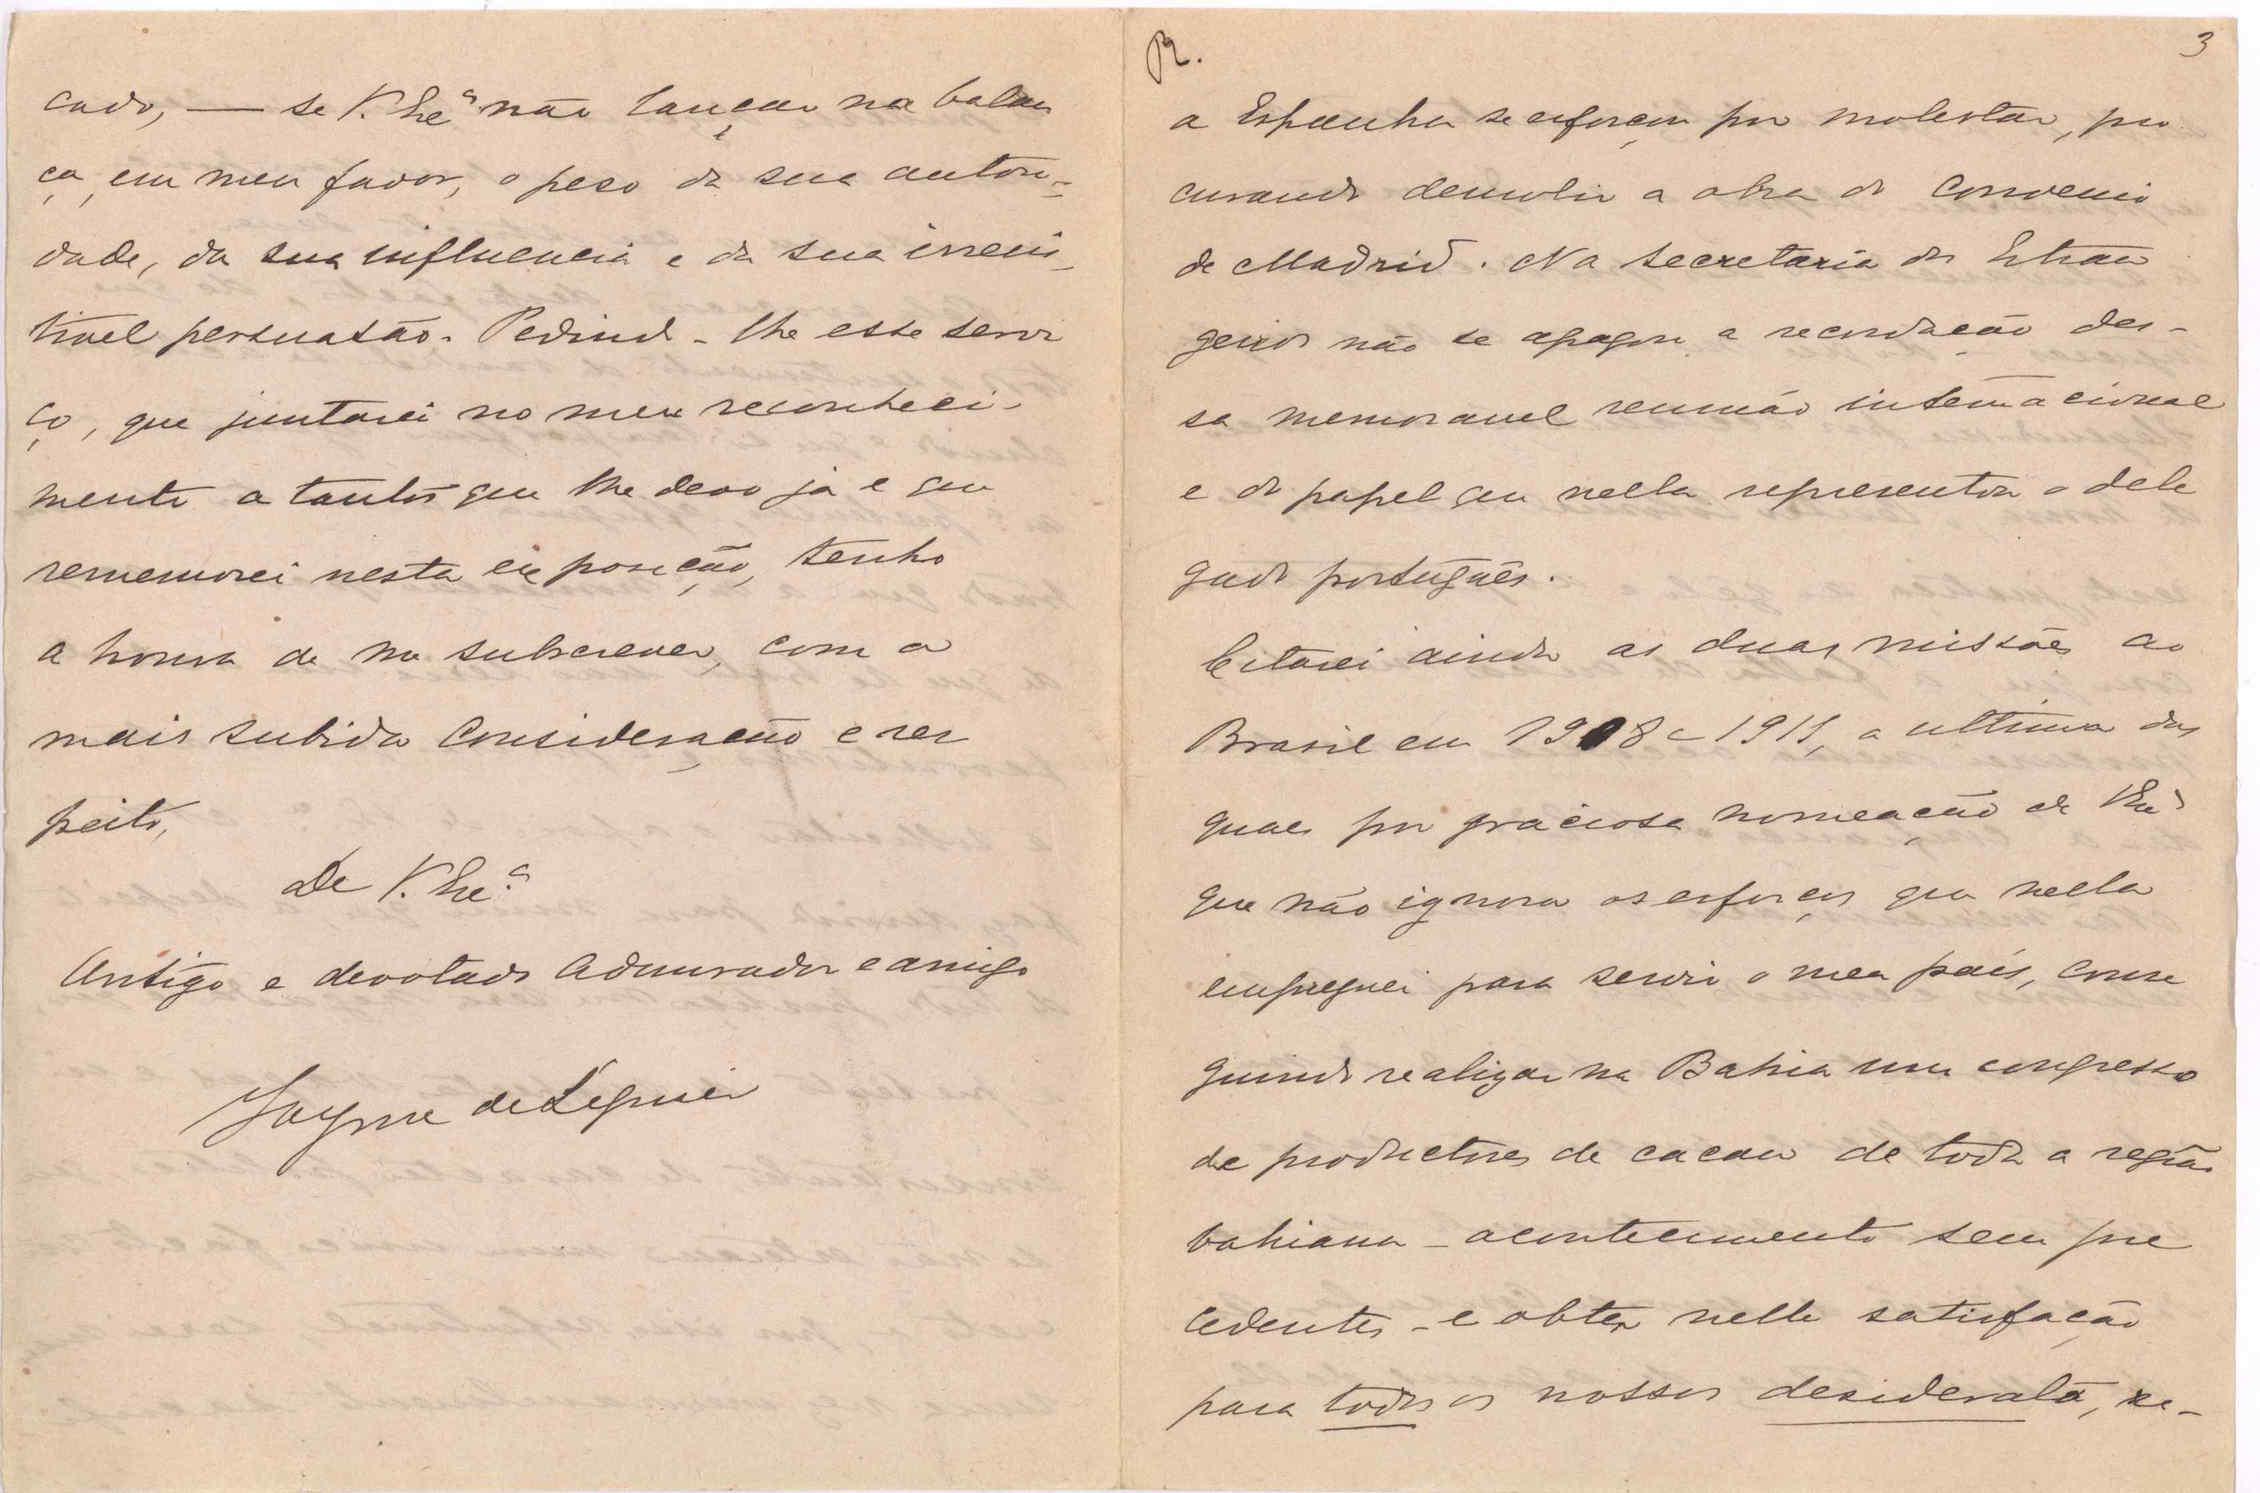 cado, — se V. Exª não lançar na balan
ça, em meu favor, o peso da sua autori=
dade, da sua influencia e da sua irresis_
tivel persuasão. Pedindo-lhe esse servi
ço, que juntarei no meu reconheci-
mento a tantos que lhe devo já e que
rememorei nesta exposição, tenho
a honra de me subscrever, com a
mais subida consideração e res
peito,
De V. Exª
Antigo e devotado admirador e amigo
Jayme de Séguier
R.
3
a Espanha se esforçou por molestar, pro
curando demolir a obra do Convenio
de Madrid. Na Secretaria dos Estran
geiros não se apagou a recordação des-
sa memoravel reunião internacional
e do papel que nella representou o dele
gado português.
Citarei ainda as duas missões ao
Brasil em 1908 e 1911, a ultima das
quaes por graciosa nomeação de V. Exª
que não ignora os esforços que nella
empreguei para servir o meu país, conse
guindo realizar na Bahia um congresso
de productores de cacau de toda a região
bahiana _ acontecimento sem pre
cedentes _ e obter nelle satisfação
para todos os nossos desiderata, re-